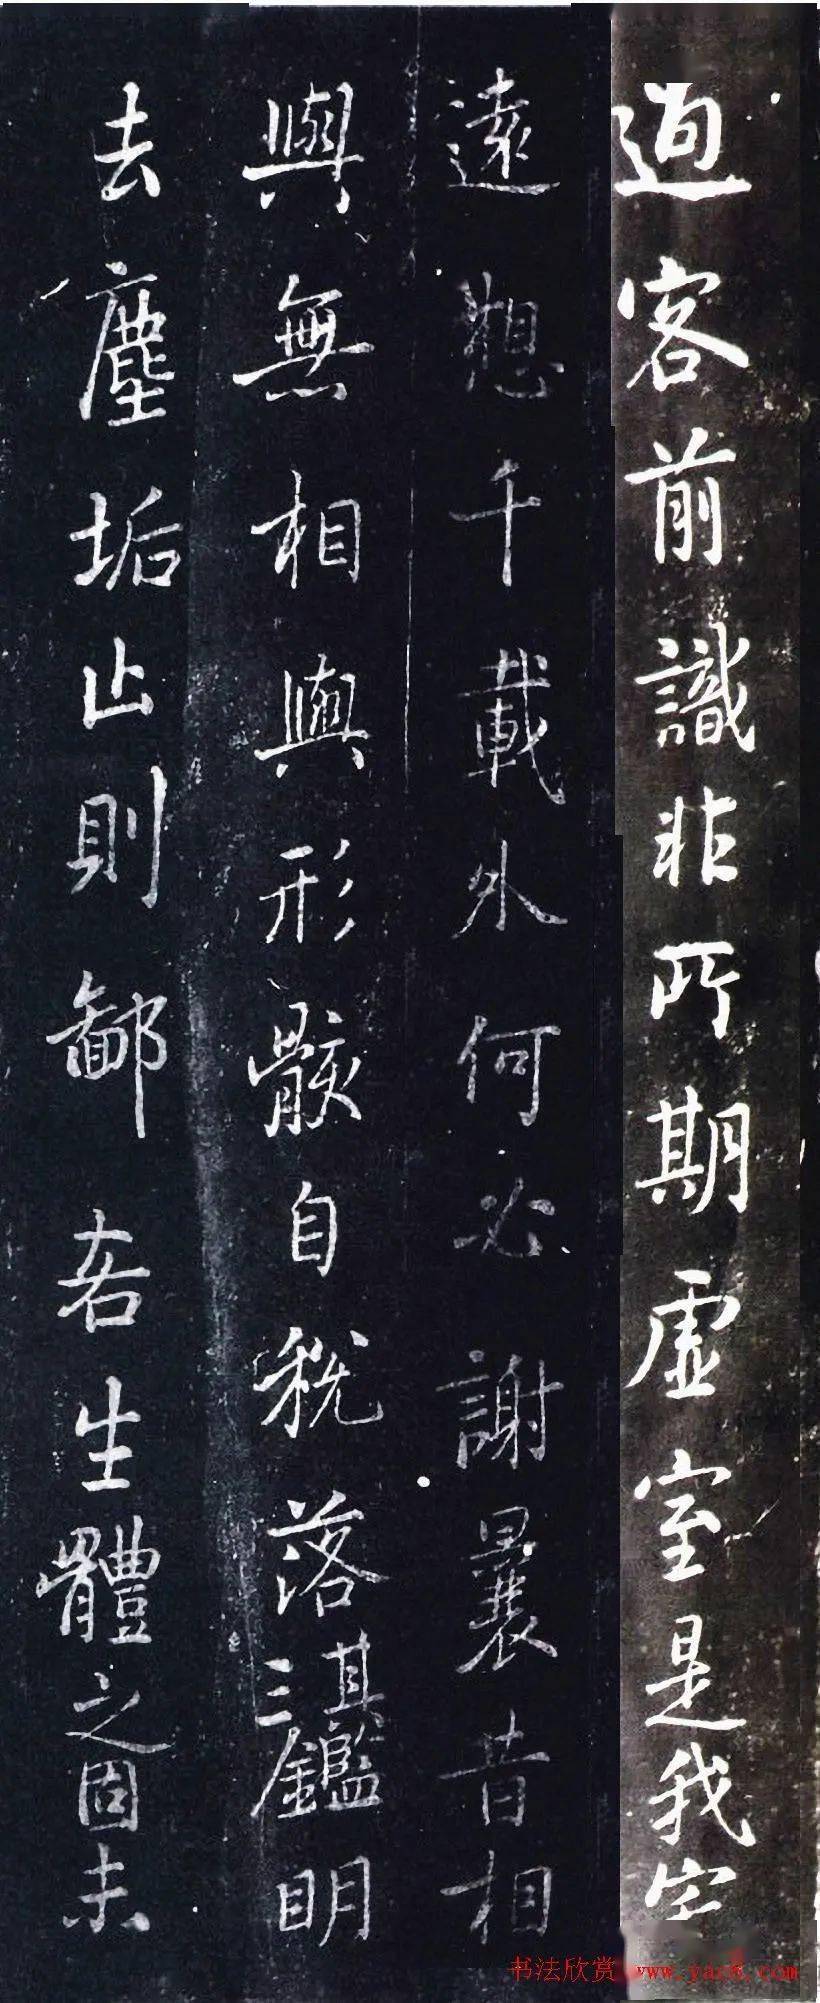 過客前識非所期虛室是我宅
遠想千載外何必謝曩昔相
與無相與形骸自脫落其三鑑明
去塵垢止則鄙吝生體之固未
书法欣赏 www.yac8.com